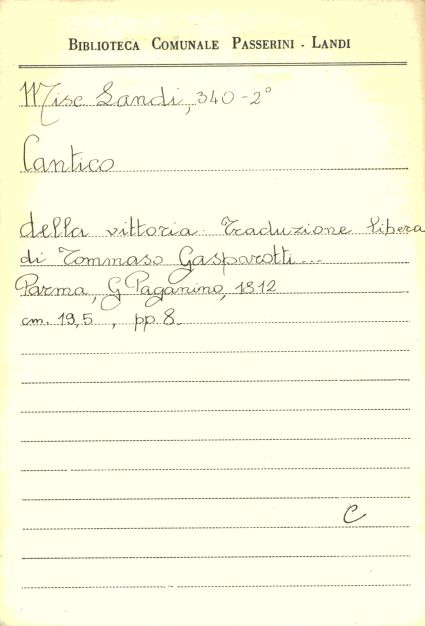 BIBLIOTECA COMUNALE PASSERINI - LANDI
Misc Landi, 340-2°
Cantico
della vittoria. Traduzione libera
di Tommaso Gasparotti...
Parma, G Paganino, 1812
cm. 19,5 , pp 8.
C